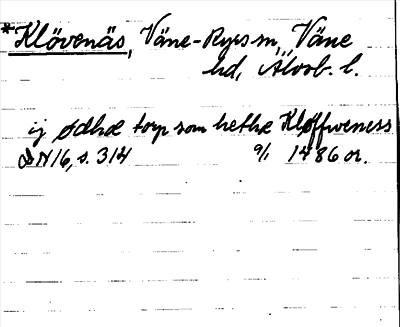 *Klövenäs, Väne-Ryrs sn, Väne
hd, Älvsb. l.
ij ødhæ torp som hethæ Kløffweness
DN 16, s. 314 9/1 1486 or.